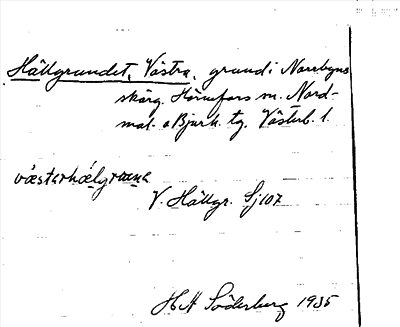 Hällgrundet, Västra, grund i Norrbyns
skärg. Hörnefors m. Nord-
mal. o Bjurh. tg. Västerb. l.
västerhælgrɯna
V. Hällgr. Sj 107
H H Söderberg 1935